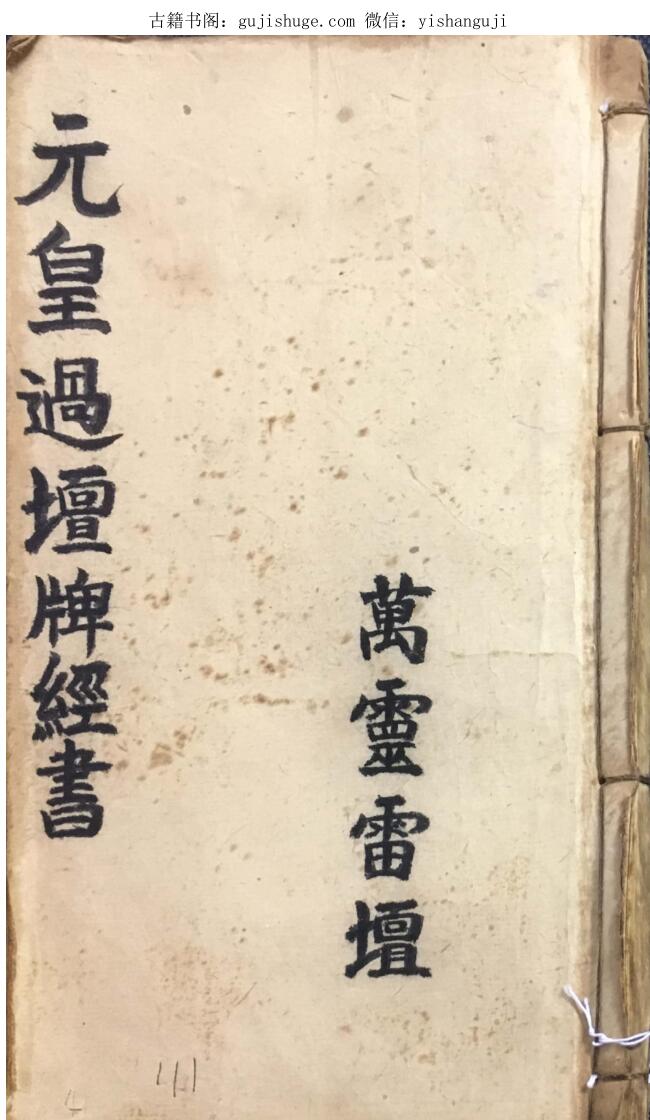 古籍书阁：gujishuge.com 微信：yishanguji
萬靈雷壇
元皇過壇牌經書